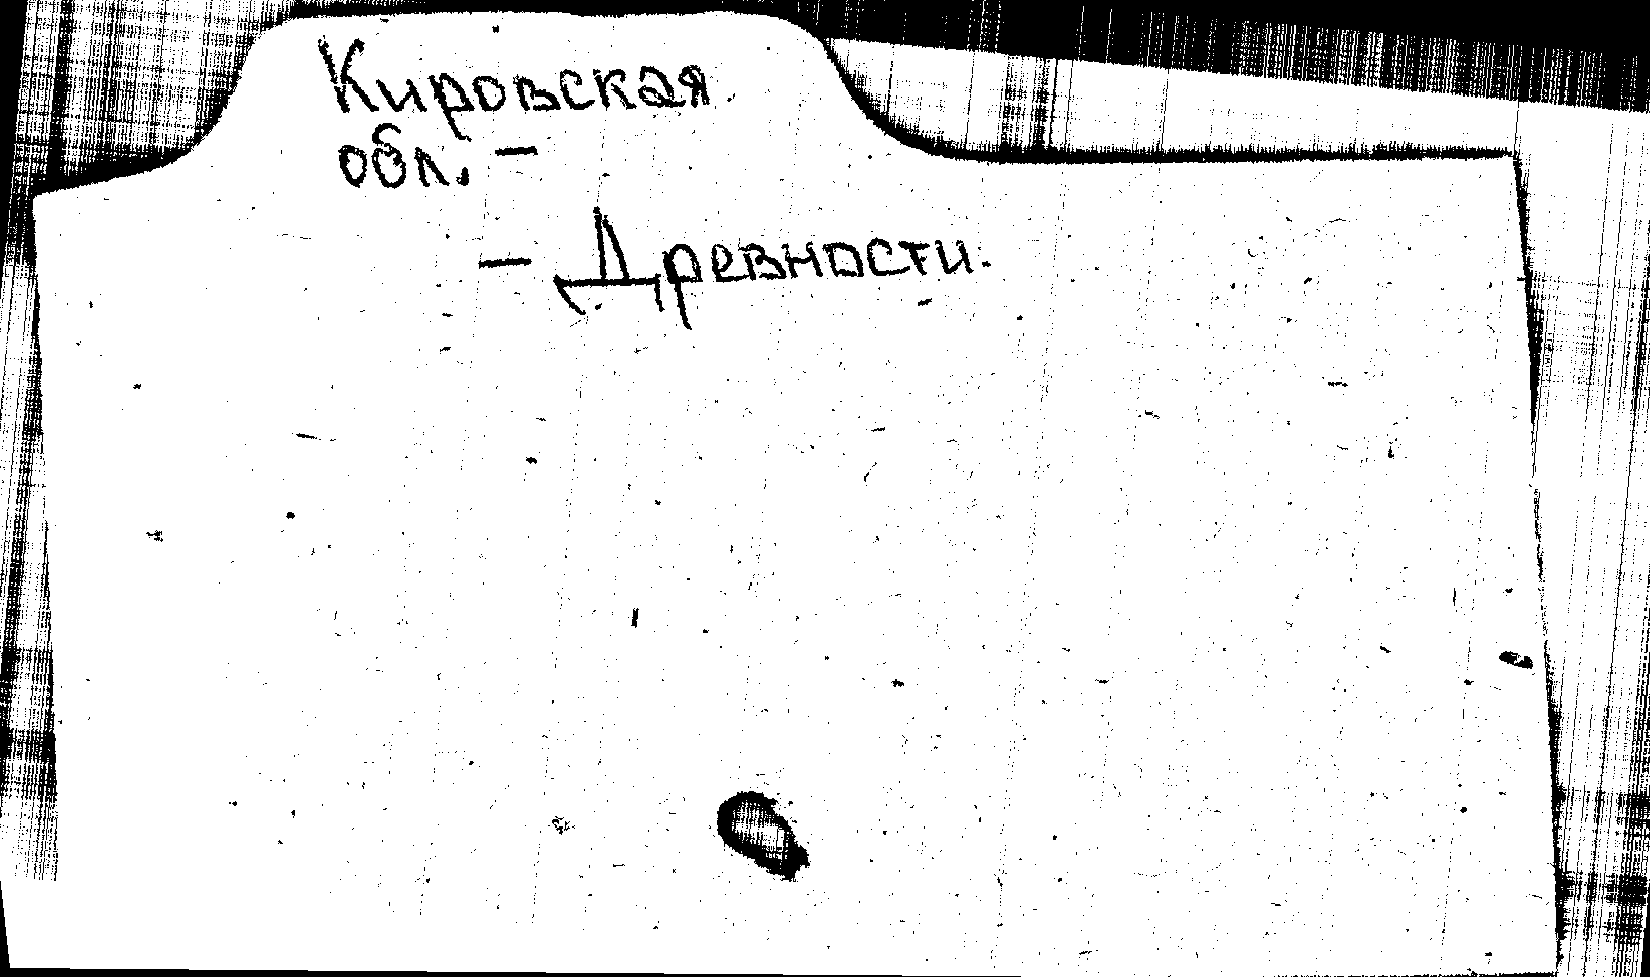 Кировская
обл. —
— Древности.